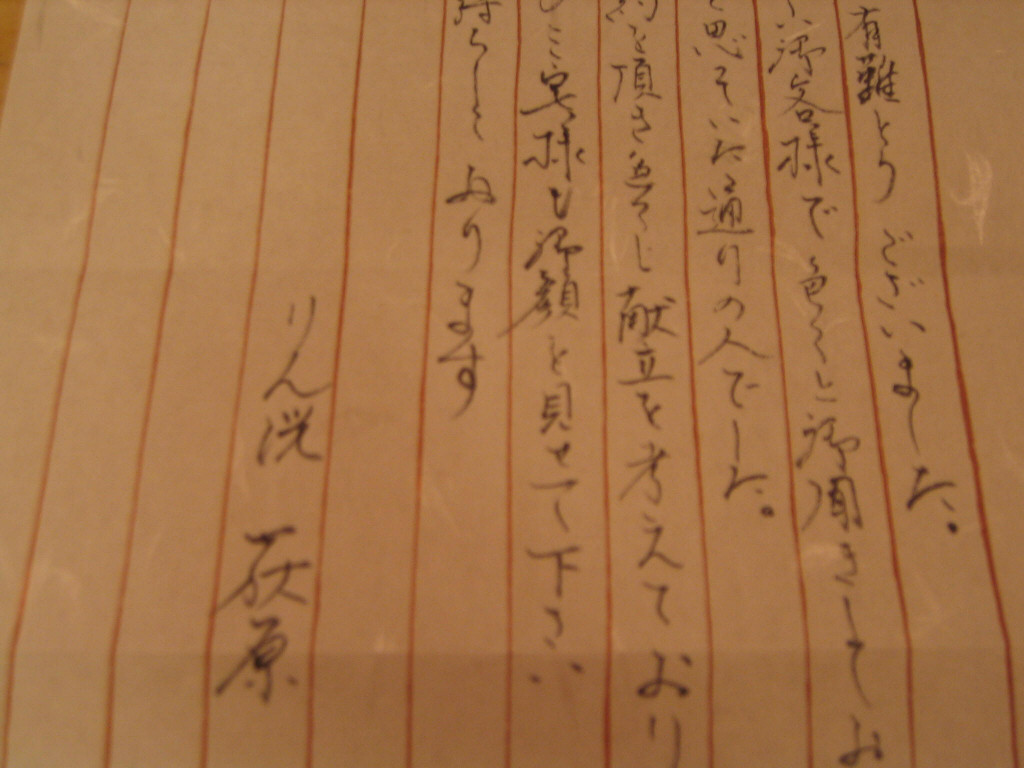 有難とうございました。
御客様で色々と御聞きしてお
思っていた通りの人でした。
約を頂き 献立を考えており
皆様も御顔を見せて下さい
待ちしております
りん
荻原